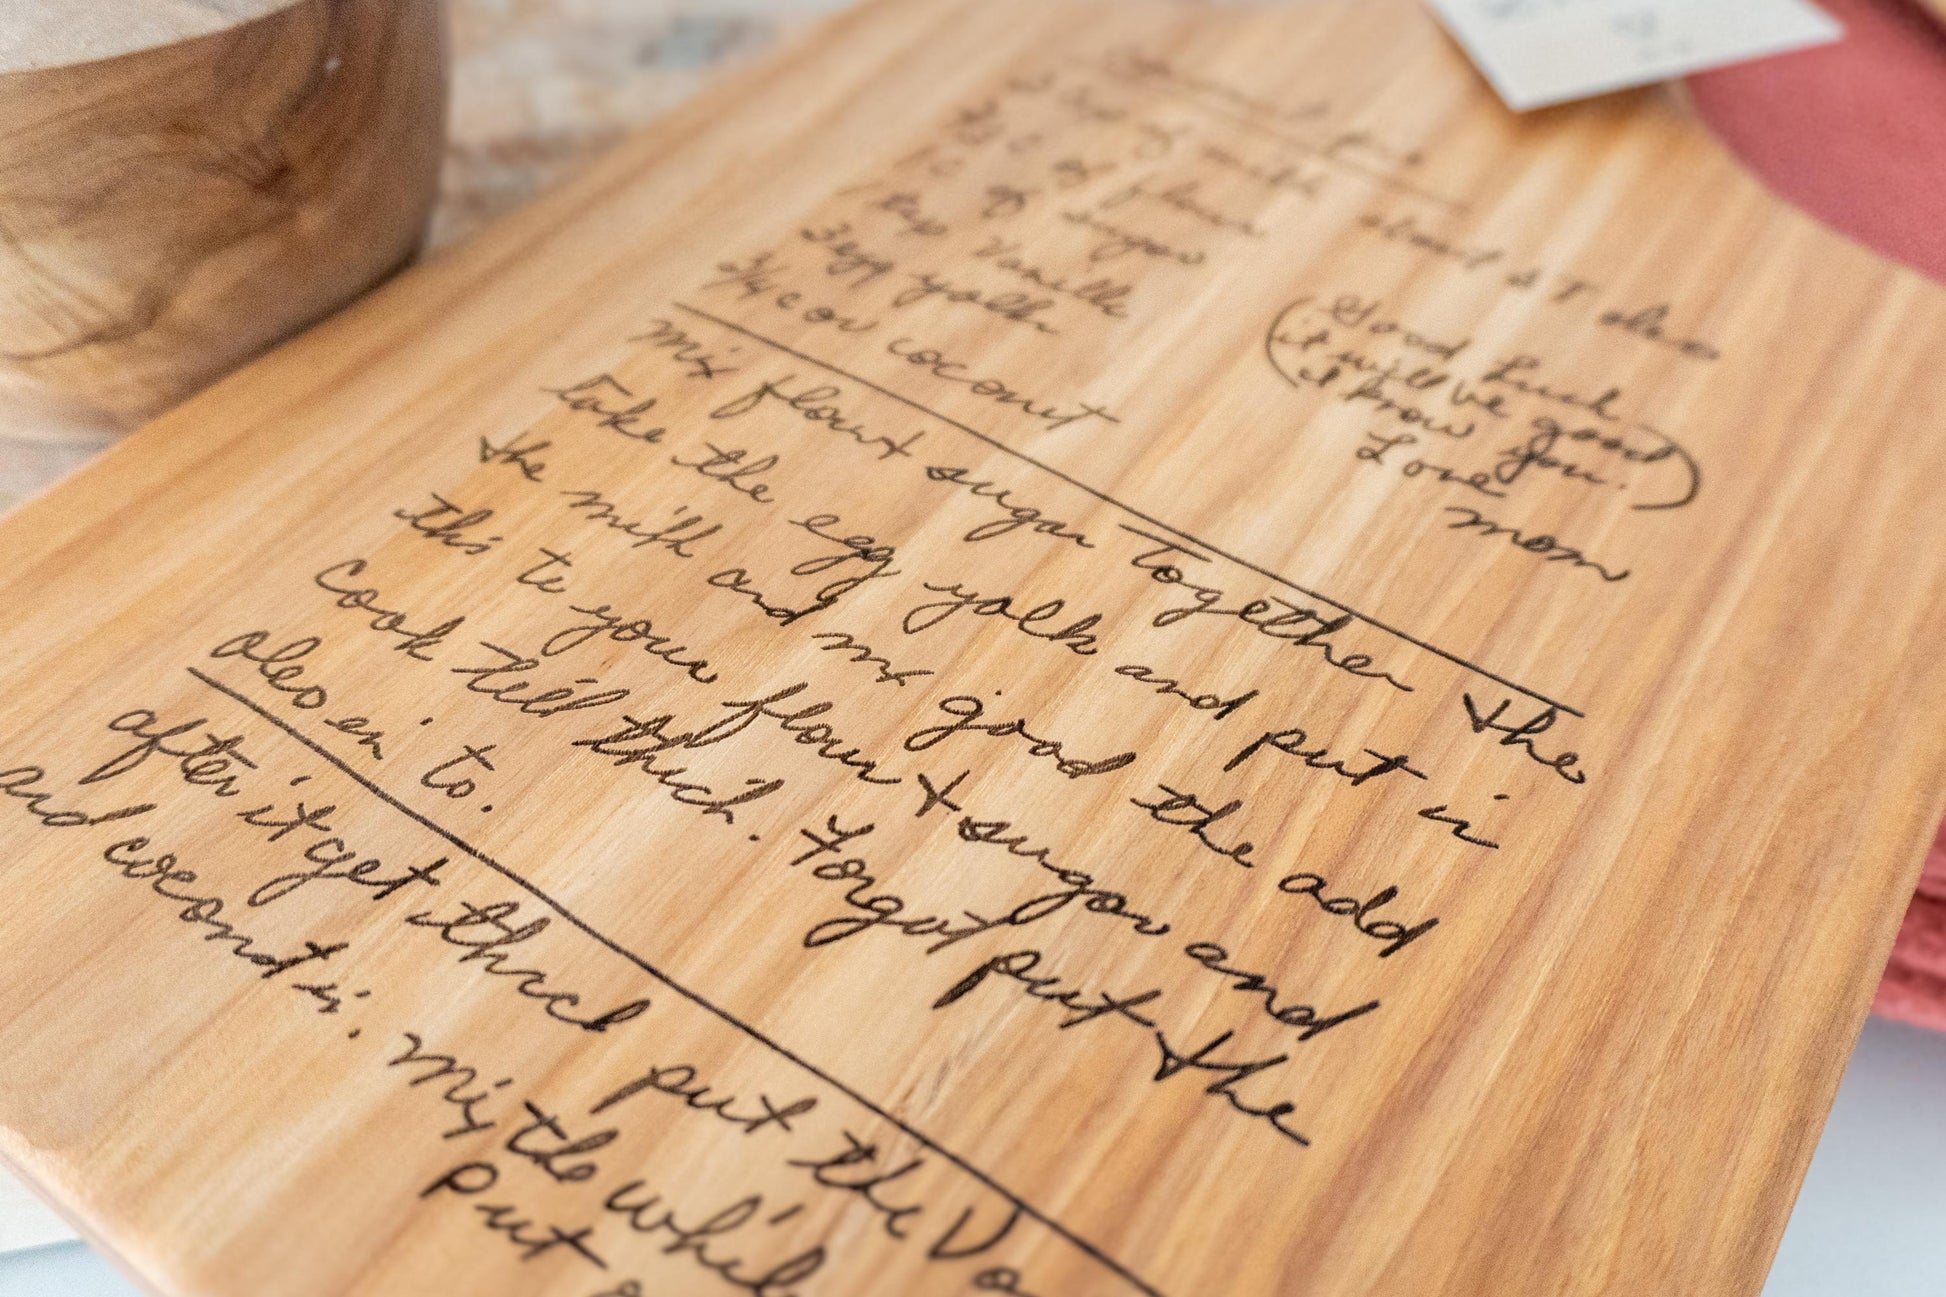 Pie
2 cup of milk
3/4 c of flour
1 c of sugar
1 tsp Vanilla
3 egg yolk
3/4 c or coconut
about 2 T oleo
(Good Luck
it will be good
I know you.)
Love
mom
Mix flour + sugar together the
take the egg yolk and put in
the milk and mix good the add
this to your flour + sugar and
cook till thick. Forgot put the
oleo in to.
after it get thick put the Va
and coconut in. Mix the whil
put